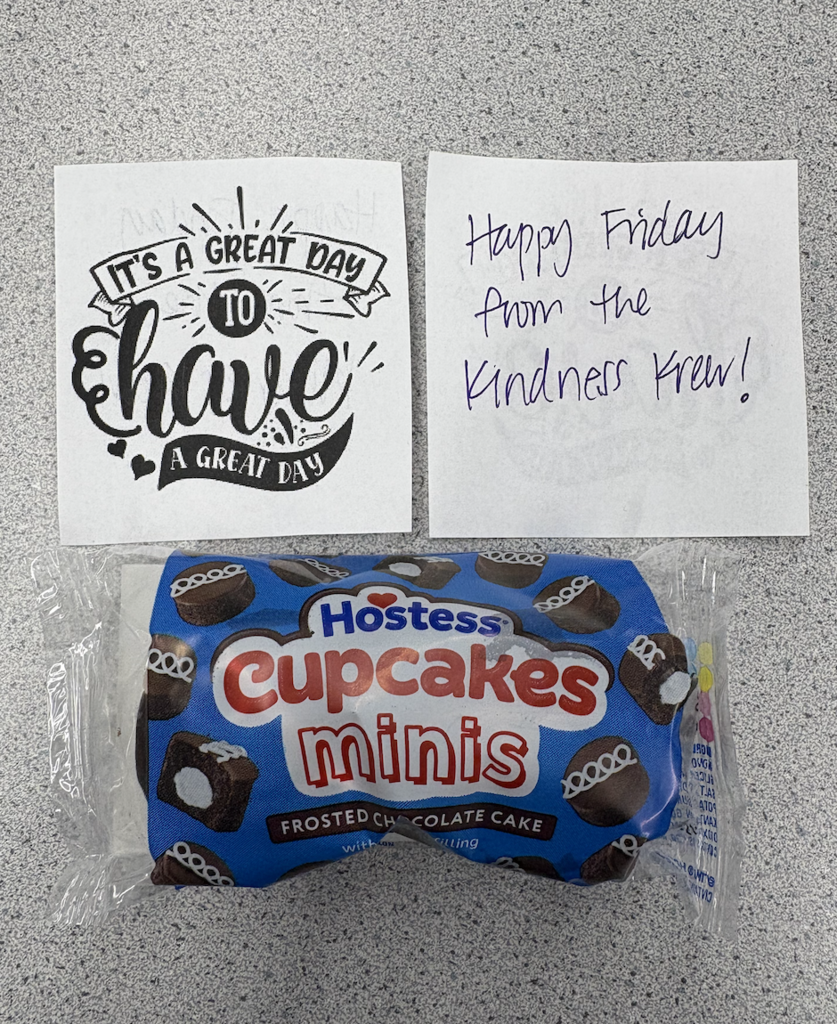 IT'S A GREAT DAY
TO
have
A GREAT DAY
Happy Friday
from the
Kindness Krew!
Hostess
Cupcakes
minis
FROSTED CHOCOLATE CAKE
with filling